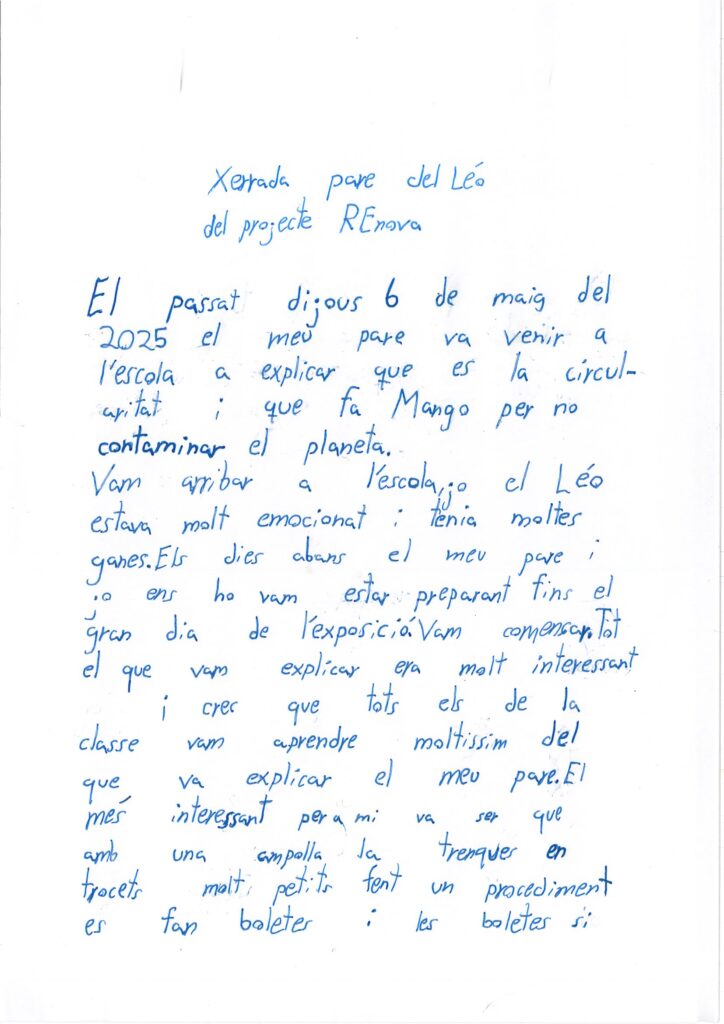 Xerrada pare del Léo
del projecte REnova
El passat dijous 6 de maig del
2025 el meu pare va venir a
l'escola a explicar que es la circul-
aritat i que fa Mango per no
contaminar el planeta.
Vam arribar a l'escola, jo el Léo
estava molt emocionat i tenia moltes
ganes. Els dies abans el meu pare i
jo ens ho vam estar preparant fins el
gran dia de l'exposició. Vam començar. Tot
el que vam explicar era molt interessant
i crec que tots els de la
classe vam aprendre moltissim del
que va explicar el meu pare. El
més interessant per a mi va ser que
amb una ampolla la trenques en
trocets molt petits fent un procediment
es fan boletes i les boletes si